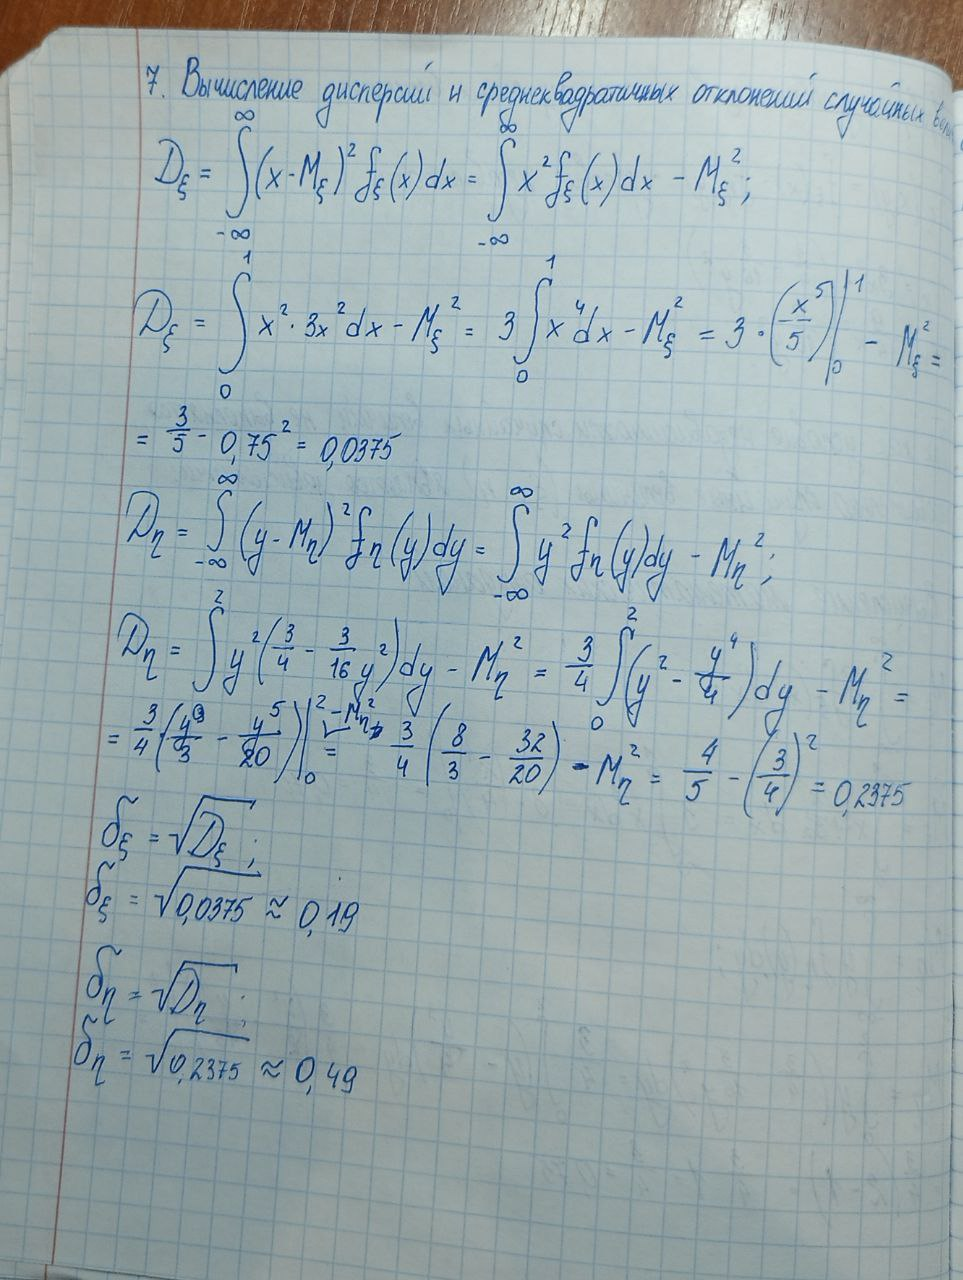 7. Вычисление дисперсий и среднеквадратичных отклонений случайных
Dξ = ∫_{-∞}^{∞} (x - Mξ)² fξ(x) dx = ∫_{-∞}^{∞} x² fξ(x) dx - Mξ²;
Dξ = ∫_0^1 x² · 3x² dx - Mξ² = 3 ∫_0^1 x⁴ dx - Mξ² = 3 · (x⁵/5)|_0^1 - Mξ² =
= 3/5 - 0,75² = 0,0375
Dη = ∫_{-∞}^{∞} (y - Mη)² fη(y) dy = ∫_{-∞}^{∞} y² fη(y) dy - Mη²;
Dη = ∫^2 y² (3/4 - 3/16 y²) dy - Mη² = 3/4 ∫_0^2 (y² - y⁴/4) dy - Mη² =
= 3/4 (y³/3 - y⁵/20)|_0^2 - Mη² = 3/4 (8/3 - 32/20) - Mη² = 4/5 - (3/4)² = 0,2375
δξ = √Dξ;
δξ = √0,0375 ≈ 0,19
δη = √Dη;
δη = √0,2375 ≈ 0,49